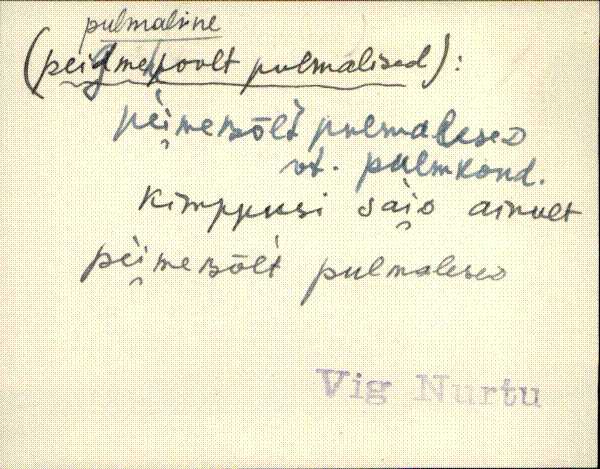 pulmaline
(peigmehpoolt pulmalised):
pèi̯mebōlt pulmaləseᴅ
vt. pulmkond.
kimppusi sai̯ᴅ ainult
pèi̯mebōlt pulmaləseᴅ
Vig Nurtu